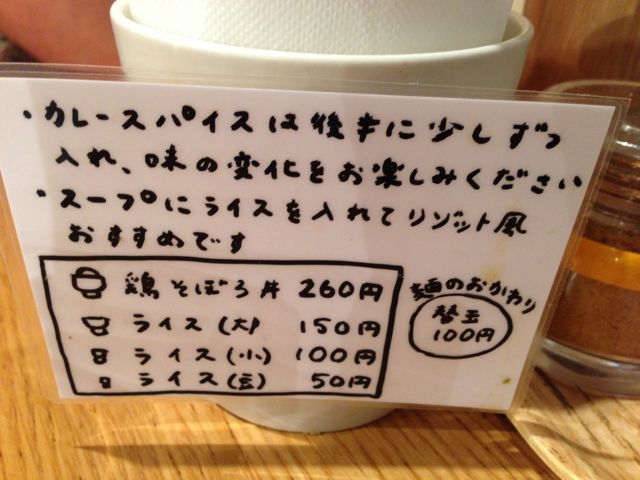 ・カレースパイスは後半に少しずつ
入れ、味の変化をお楽しみください
・スープにライスを入れてリゾット風
おすすめです
鶏そぼろ丼 260円
ライス(大) 150円
ライス(小) 100円
ライス(玄) 50円
麺のおかわり
替玉
100円